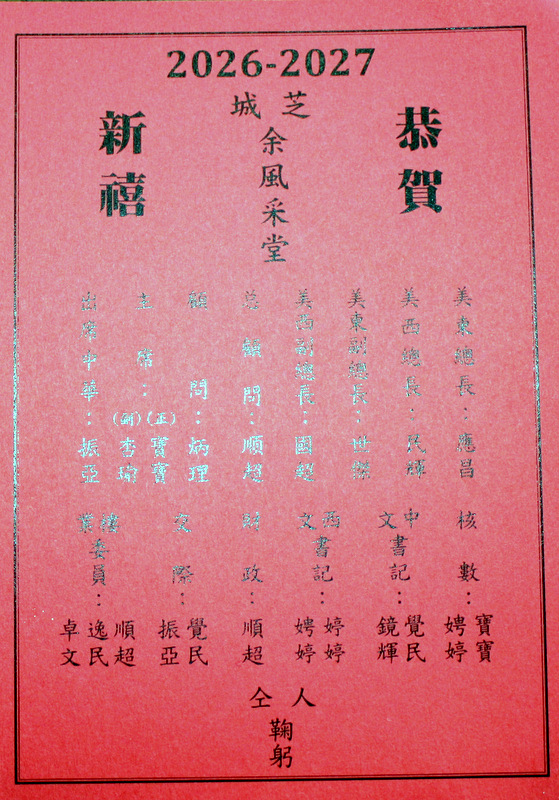 2026-2027
恭賀
新禧
芝城
余風采堂
美東總長：應昌
美西總長：民輝
美東副總長：世傑
美西副總長：國超
总顧問：順超
顧問：炳理
主席：(正)寶寶 (副)杏瑜
出席中華：振亞
核數：寶寶 娉婷
中文書記：覺民 鏡輝
西文書記：婷婷 娉婷
財政：順超
交際：覺民 振亞
樓業委員：順超 逸民 卓文
仝人
鞠躬